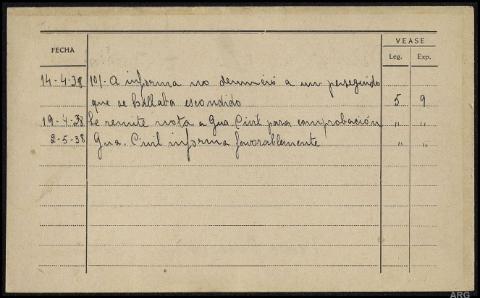 VEASE
FECHA
Leg. Exp.
14-4-38 101.- A informa no denunció a un perseguido
que se hallaba escondido 5 9
19-4-38 Se remite nota a Gua. Civil para comprobación " "
2-5-38 Gua. Civil informa favorablemente " "
ARG